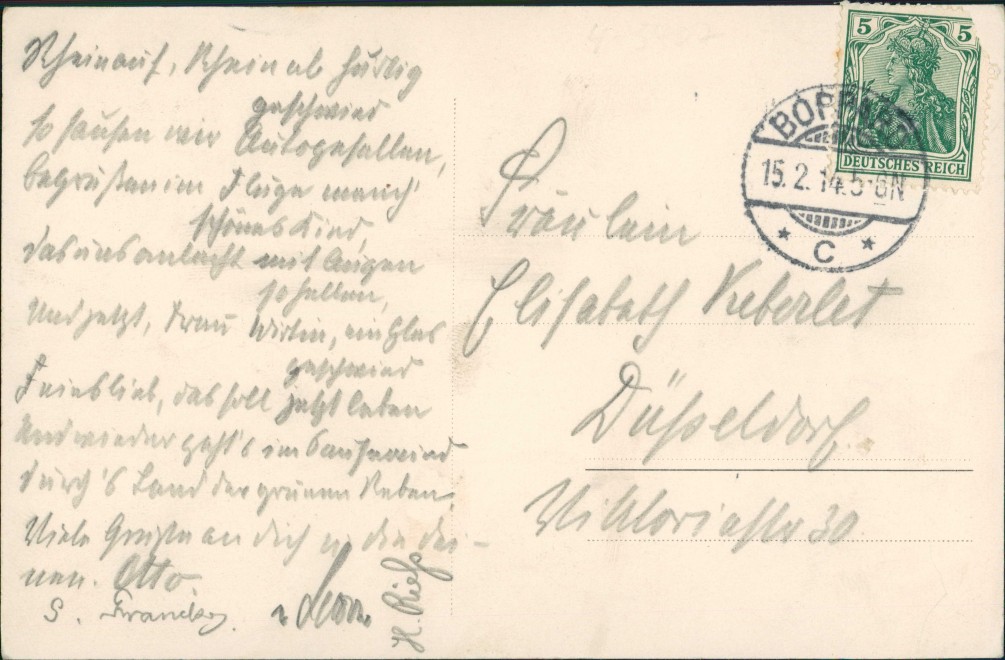 Rheinauf, Rheinab hurtig
geschwind
so sausen wir Autogesellen,
begrüßen im Fluge manch'
schönes Kind,
das uns anlacht mit Augen
so hellen,
Und jetzt, Frau Wirtin, ein Glas
geschwind
Feinslieb, das soll jetzt leben
Und wieder geht's im Sausewind
durch's Land der grünen Reben.
Viele Grüße an Dich u. die Dei-
nen. Otto.
S.
H.
5 5
DEUTSCHES REICH
BOPPARD
15.2.14.5-6N
* C *
Fräulein
Elisabeth
Düsseldorf.
Viktoriastr 30